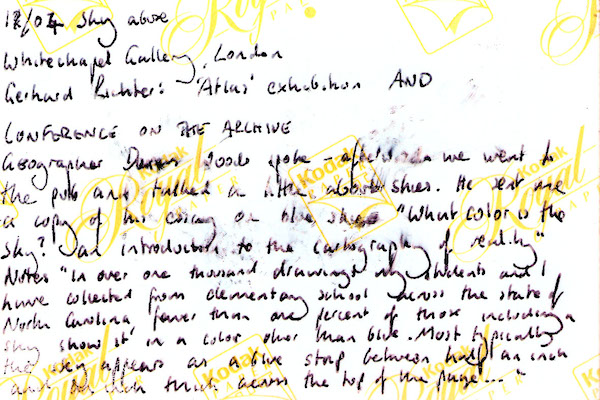 12/04 Sky above
Whitechapel Gallery, London
Gerhard Richter: 'Atlas' exhibition AND
CONFERENCE ON THE ARCHIVE
Geographer Denis Woods spoke - afterwards we went to
the pub and talked a little about skies. He sent me
a copy of his essay on blue skies "What color is the
sky? an introduction to the cartography of reality"
Notes "In over one thousand drawings my students and I
have collected from elementary school across the state of
North Carolina fewer than one percent of those including a
sky show it in a color other than blue. Most typically
the sky appears as a blue strip between half an inch
and an inch thick across the top of the page..."
Kodak
Royal
PAPER